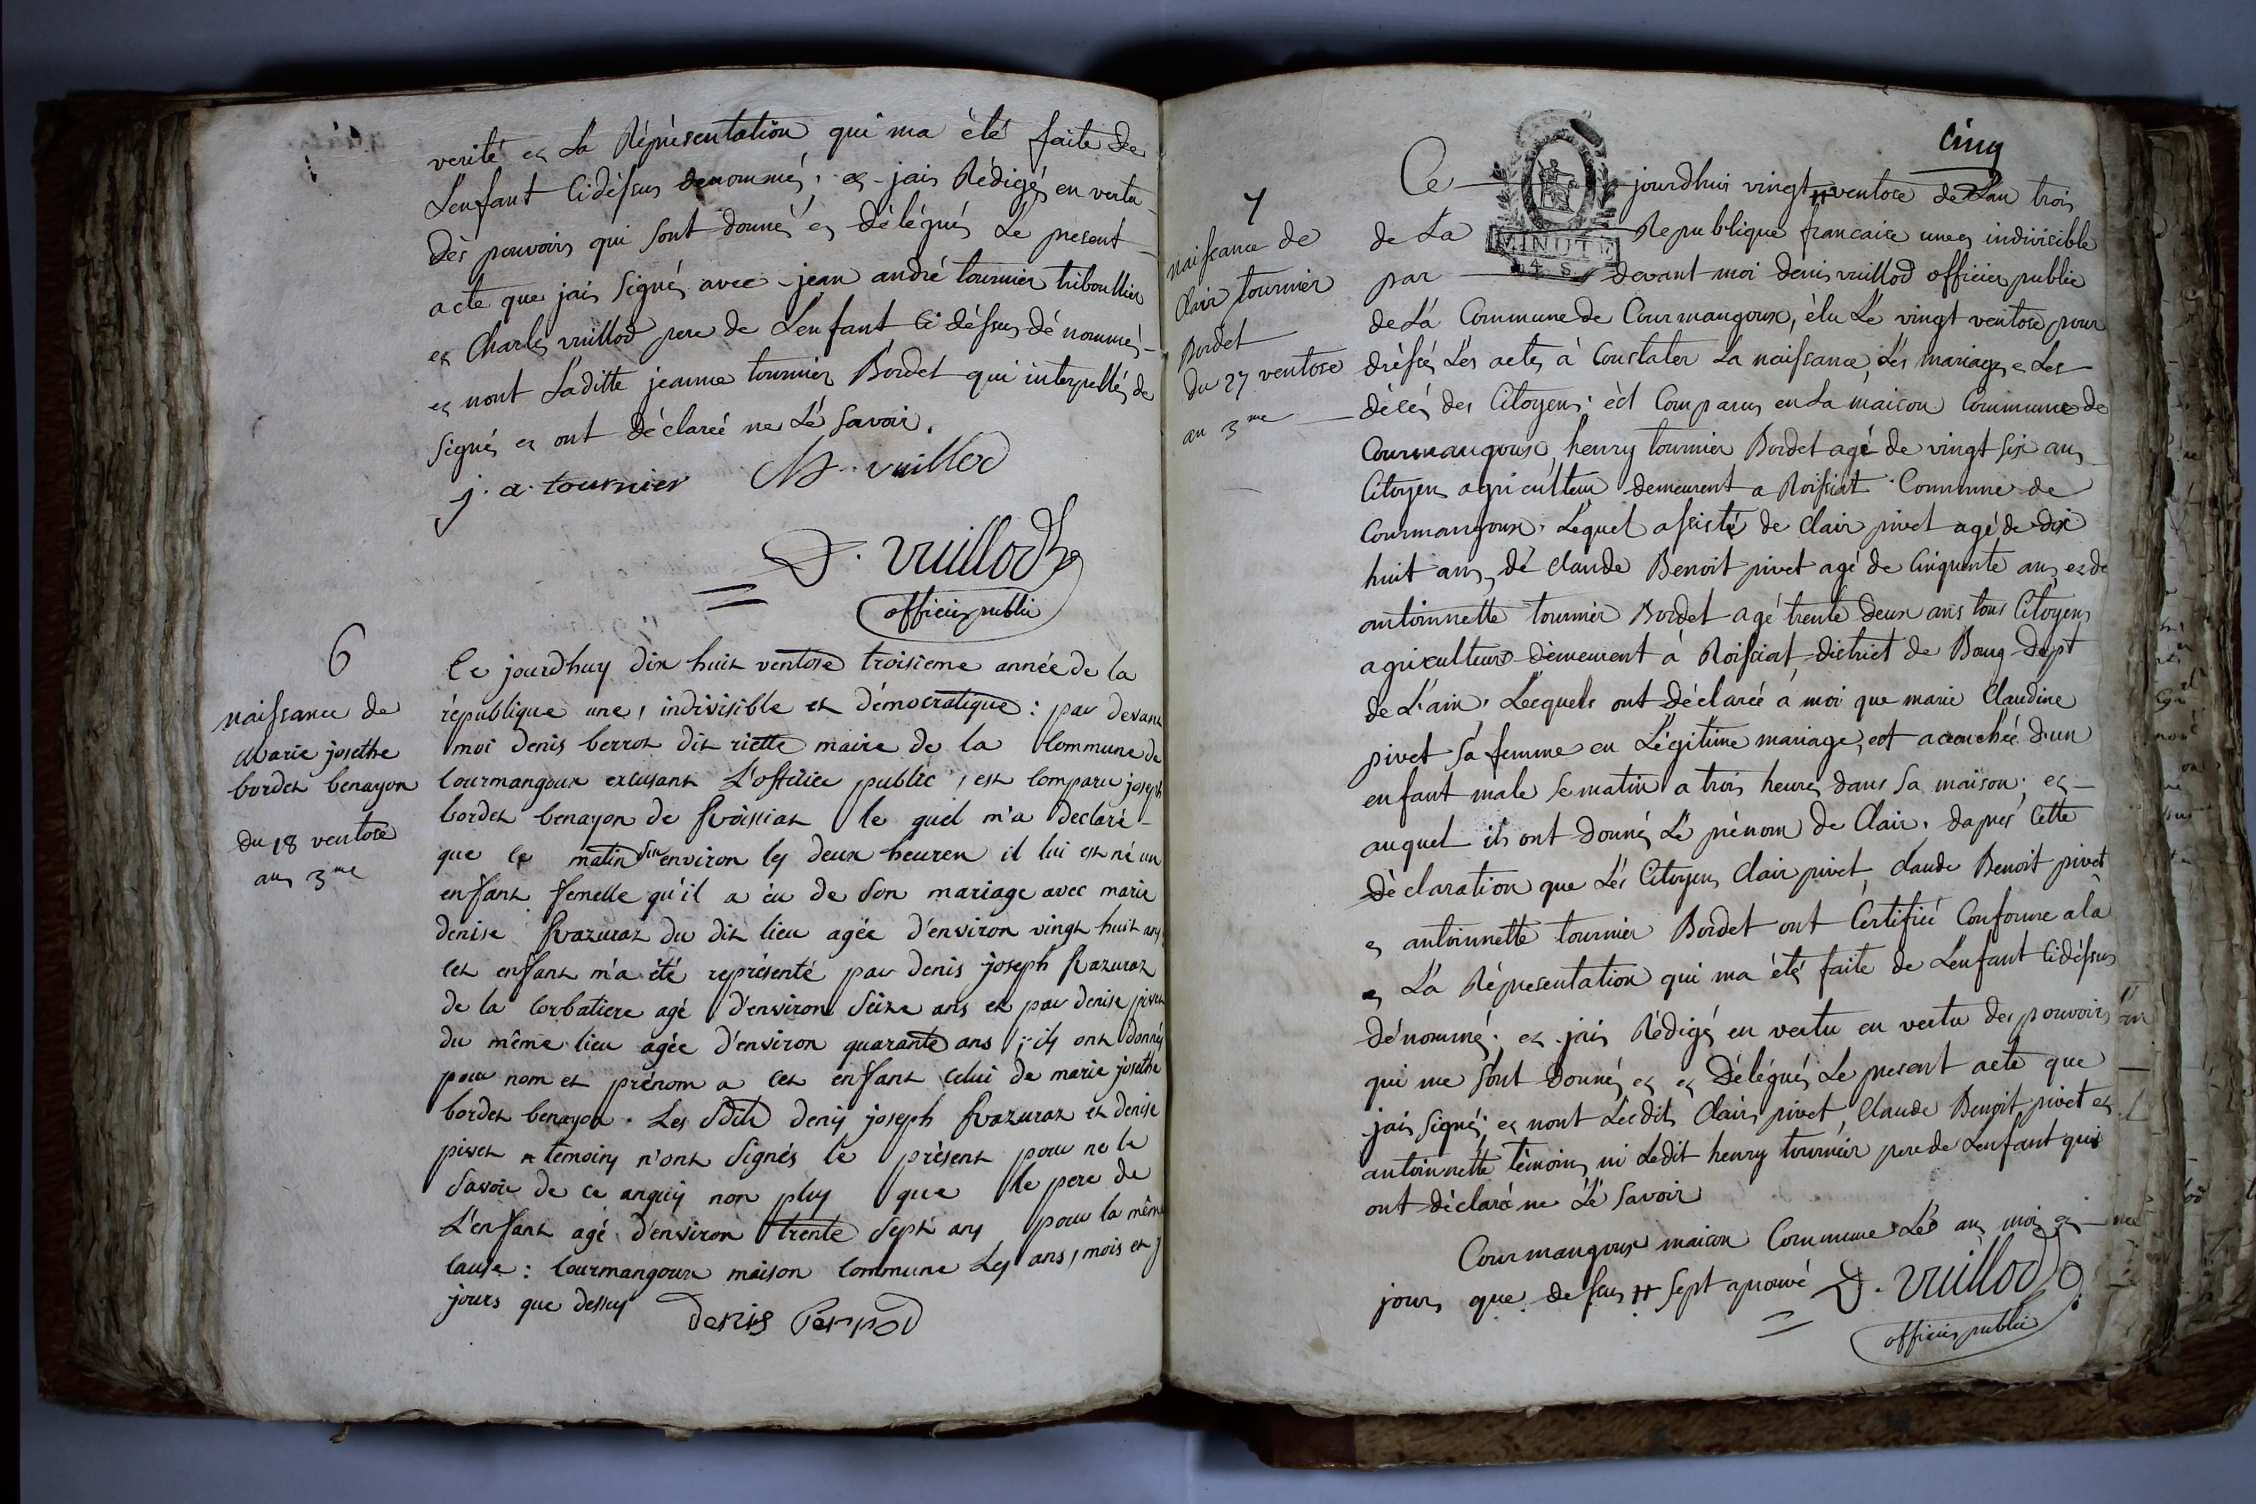 verité et La Réprésentation qui ma été faite de
L'enfant Cidéssus denommés, et jais Rédigés en vertu
dés pouvoirs qui sont donné et délégués Le present
acte que jais signés avec jean andré tournier triboullier
et Charles vuillod pere de L'enfant Ci déssus dé nommés
et nont Laditte jeanne tournier Bordet qui interpellés de
signés et ont déclareé ne Lé savoir.
j. a. tournier Ch. vuillod
D. vuillod
officier public
6
naissance de
marie josethe
bordet benayon
du 18 ventose
an 3me
Ce jourdhuy dix huit ventose troisieme année de la
république une, indivisible et démocratique : par devant
moi denis berrod dit riette maire de la Commune de
Courmangoux excusant L'officier public, est comparu joseph
bordet benayon de Roissiat le quel m'a déclaré
que ce matin sur environ les deux heures il lui est né un
enfant femelle qu'il a eu de son mariage avec marie
denise Razuraz du dit lieu agée d'environ vingt huit ans
cet enfant m'a été représenté par denis joseph Razuraz
de la Corbatiere agé d'environ seize ans et par denise pivet
du même lieu agée d'environ quarante ans ; ils ont donnés
pour nom et prénom a cet enfant celui de marie josethe
bordet benayon. Les sdits denis joseph Razuraz et denise
pivet temoins n'ont signés le présent pour ne le
savoir de ce anquis non plus que le pere de
L'enfant agé d'environ trente sept ans pour la même
cause : Courmangoux maison Commune Les ans, mois et
jours que dessus
denis Perrod
cinq
7
naissance de
Clair tournier
Bordet
du 27 ventose
an 3me
Ce jourdhui vingt # ventose de L'an trois
de La Republique francaise une et indivisible
MINUTE
4 S.
par devant moi denis vuillod officier public
de Lá Commune de Courmangoux, élu Le vingt ventose pour
dréssés Lés actes à Constater La naissance, Lés mariages et Les
décés des Citoyens, ést Comparus en La maison Commune de
Courmangoux, henry tournier Bordet agé de vingt six ans
Citoyen agriculteur demeurent a Roissiat Commune de
Courmangoux, Léquel assisté de Clair pivet agé de dix
huit ans, dé claude Benoit pivet agé de Cinquente ans et de
antoinnette tournier Bordet agé trente deux ans tous Citoyens
agriculteurs démeurent à Roissiat district de Bourg dept
de L'ain, Lecquels ont déclareé à moi que marie Claudine
pivet sa femme en Légitime mariage, est accouchéé d'un
enfant male se matin a trois heures dans sa maison, et
auquel ils ont donnés Lé prénom de Clair, dapres cette
déclaration que Lés Citoyens Clair pivet, claude Benoit pivet
et antoinnette tournier Bordet ont Certifieé Conforme a la
et Lá Représentation qui ma été faite de Lenfant Cidéssus
dénommé, et jais Rédigés en vertu en vertu des pouvoirs
qui me sont donnés et et Délégués Le present acte que
jais signés, et nont Lesdits Clair pivet Claude Benoit pivet et
antoinnette témoins, ni Ledit henry tournier pere de Lenfant qui
ont déclaré ne Lé savoir
Courmangoux maison Commune Lés an, mois et
jours que dessus # sept aprouvé D. vuillod
officier public